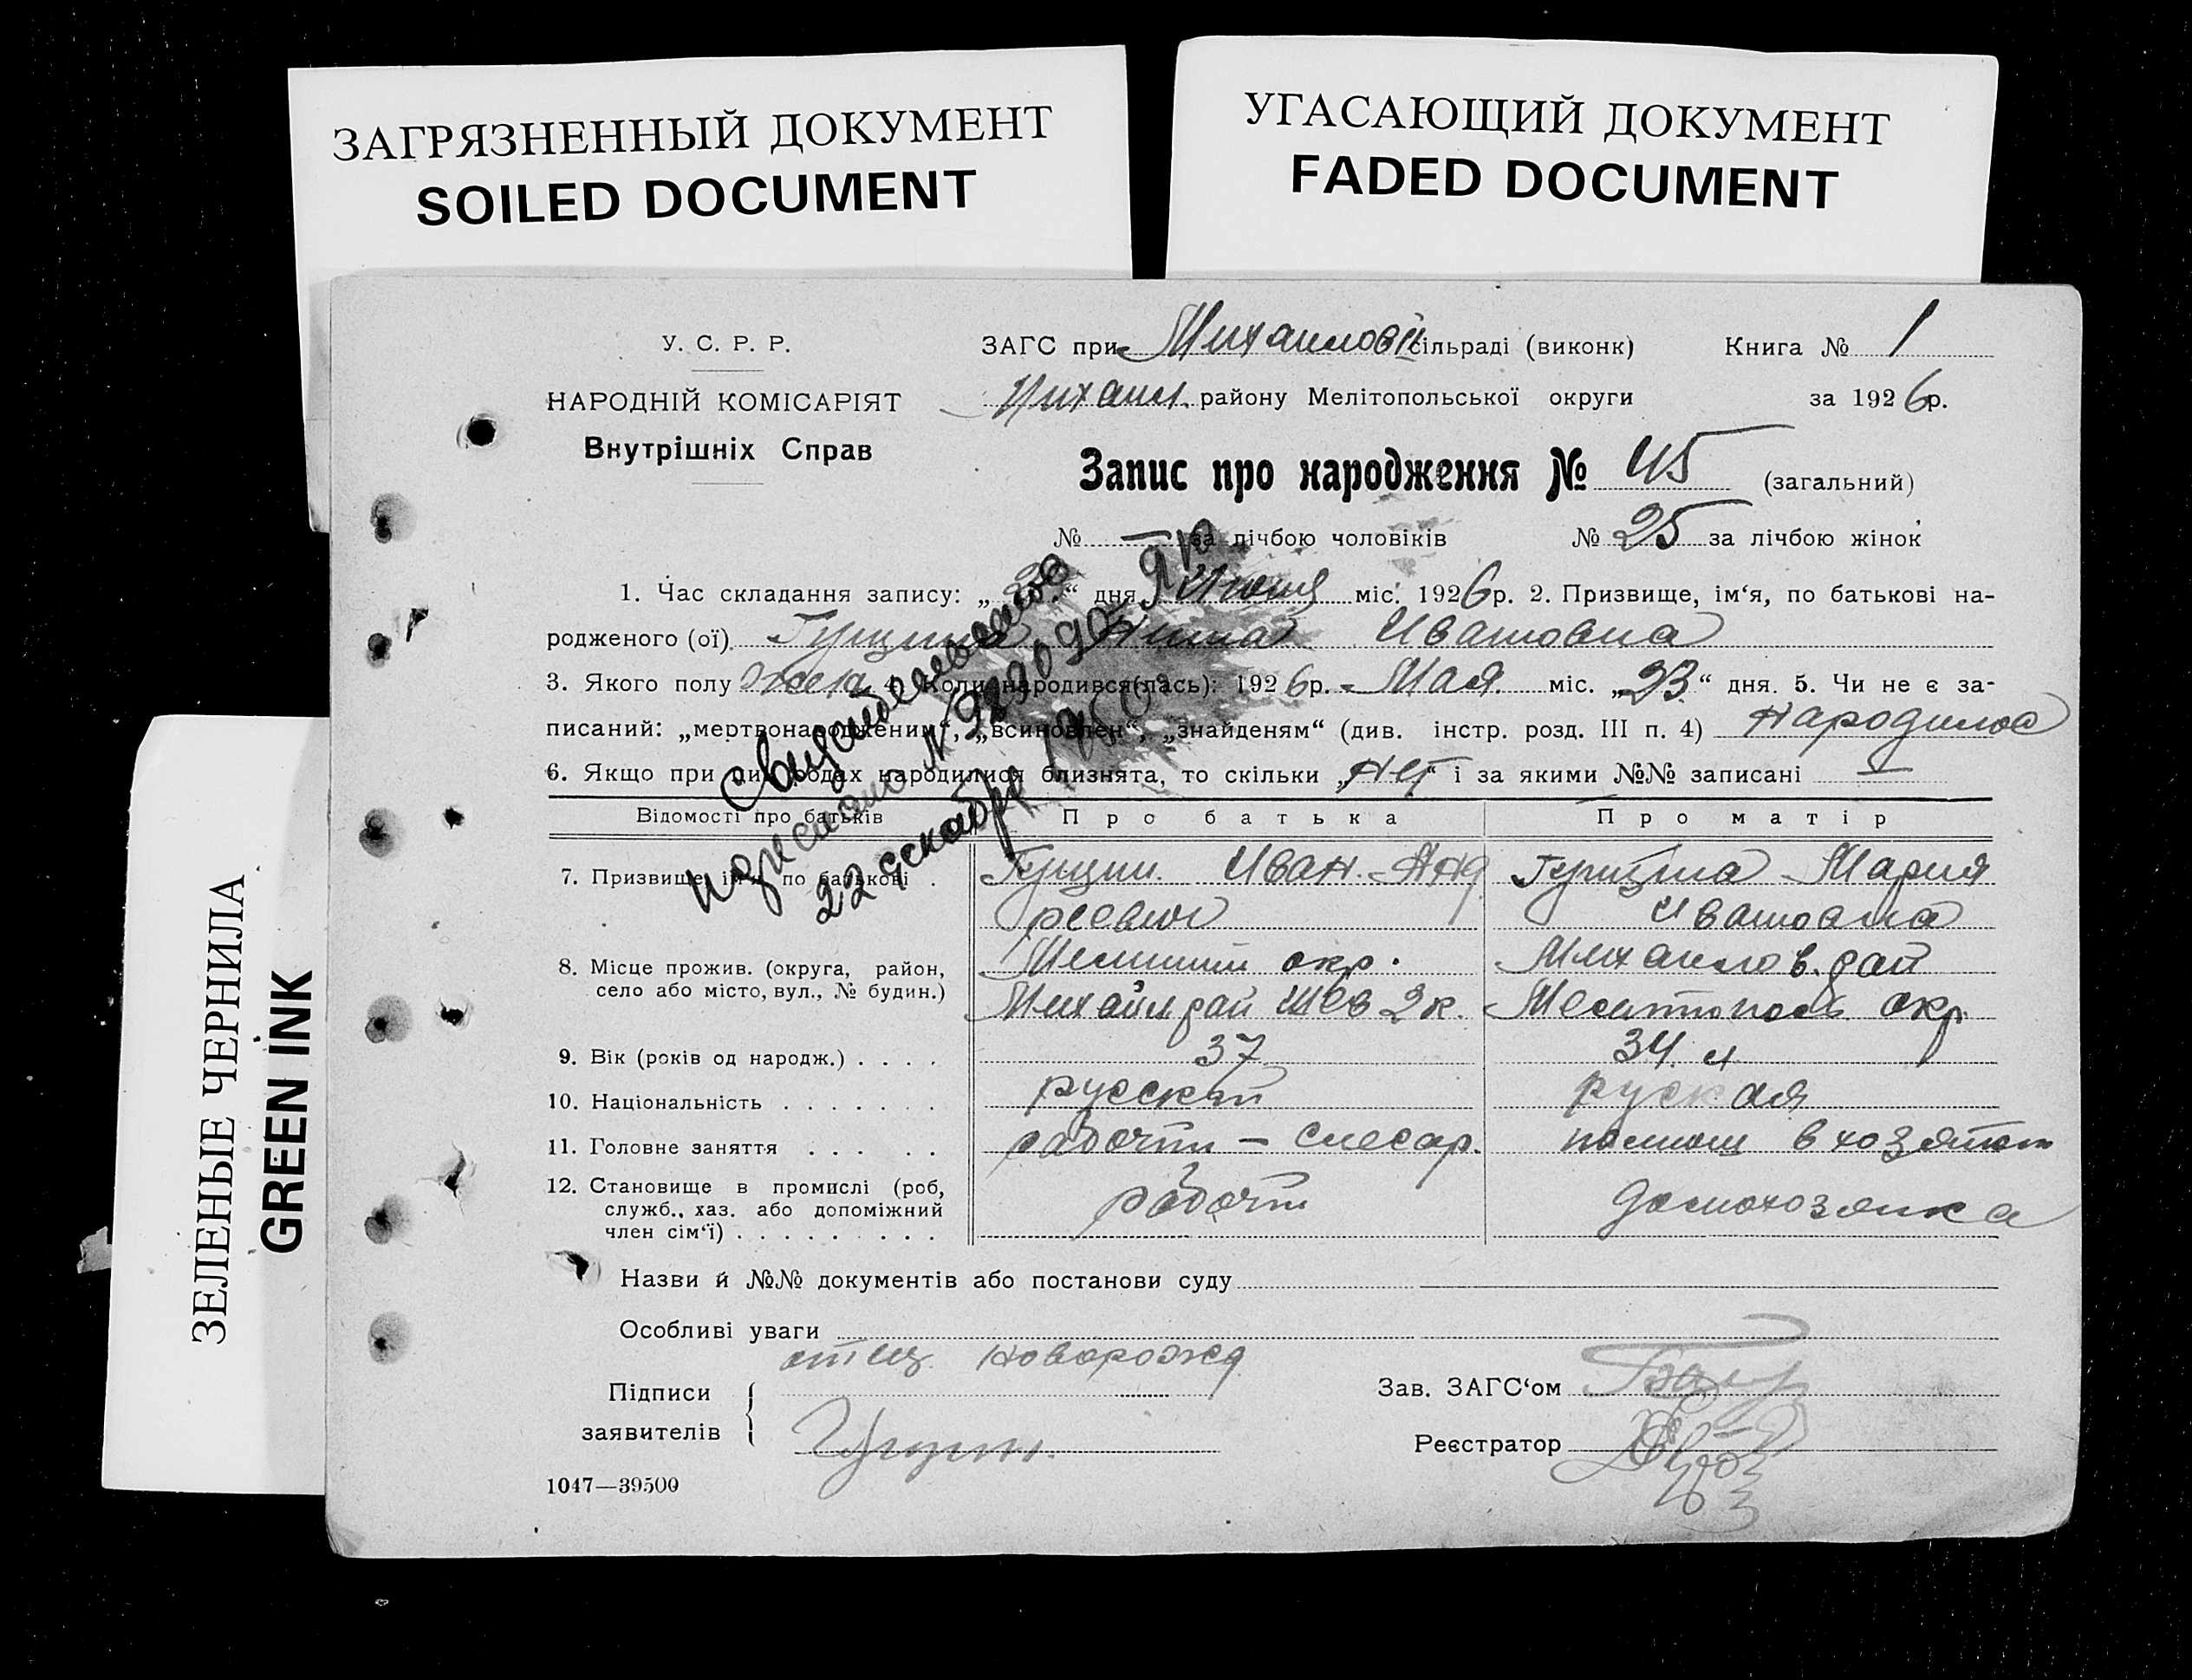 ЗАГРЯЗНЕННЫЙ ДОКУМЕНТ
SOILED DOCUMENT
УГАСАЮЩИЙ ДОКУМЕНТ
FADED DOCUMENT
ЗЕЛЕНЫЕ ЧЕРНИЛА
GREEN INK
У. С. Р. Р.
НАРОДНІЙ КОМІСАРІЯТ
Внутрішніх Справ
ЗАГС при сільраді (виконк) Книга № 1
району Мелітопольської округи за 1926р.
Запис про народження № 45 (загальний)
№ — за лічбою чоловіків № 25 за лічбою жінок
1. Час складання запису: „ “ дня Июня міс. 1926р. 2. Призвище, ім‘я, по батькові на-
родженого (ої) Гущина Нина Ивановна
3. Якого полу жена 4. Коли народився(лась): 1926р. Мая міс. „23“ дня. 5. Чи не є за-
писаний: „мертвонародженим“, „всиновлен“, „знайденям“ (див. інстр. розд. III п. 4) Народилас
6. Якщо при ци родах народилися близнята, то скільки „Нет“ і за якими №№ записані —
Свидетельство
22 декабря 1950
Відомості про батьків Про батька Про матір
7. Призвище, ім‘я, по батькові . Гущин Иван Анд Гущина Мария
реевич Ивановна
8. Місце прожив. (округа, район, окр. Михайлов. рай
село або місто, вул., № будин.) Михайл рай Шев 2к. окр.
9. Вік (років од народж.) . . . . 37 34
10. Національність . . . . . . . русский руская
11. Головне заняття . . . . . рабочий — слесар.
12. Становище в промислі (роб, рабочий домохозяика
служб., хаз. або допоміжний
член сім‘ї) . . . . . . . . .
Назви й №№ документів або постанови суду
Особливі уваги
отец новорожд
Підписи
заявителів Гущин.
Зав. ЗАГС‘ом
Реєстратор
1047—39500